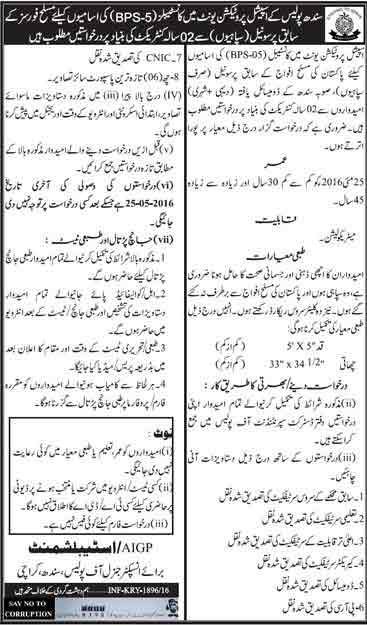 سندھ پولیس کے اسپیشل پروٹیکشن یونٹ میں کانسٹیبلز (BPS-5) کی اسامیوں کیلئے مسلح فورسز کے
سابق پرسونیل (سپاہیوں) سے 02 سالہ کنٹریکٹ کی بنیاد پر درخواستیں مطلوب ہیں
اسپیشل پروٹیکشن یونٹ میں کانسٹیبلز (BPS-05) کی اسامیوں
کیلئے پاکستان کی مسلح افواج کے سابق پرسونیل (صرف
سپاہیوں)، صوبہ سندھ کے ڈومیسائل یافتہ (دیہی + شہری)
امیدواروں سے 02 سالہ کنٹریکٹ کی بنیاد پر درخواستیں مطلوب
ہیں۔ ضروری ہے کہ درخواست گزار درج ذیل معیار پر پورا
اترتے ہوں۔
عمر
25 مئی 2016 کو کم سے کم 30 سال اور زیادہ سے زیادہ
45 سال۔
قابلیت
میٹریکولیشن۔
طبی معیارات
امیدواران کا اچھی ذہنی اور جسمانی صحت کا حامل ہونا ضروری
ہے، وہ سپاہی ہوں اور پاکستان کی مسلح افواج سے برطرف نہ کئے
گئے ہوں۔ نیز وہ کلیئر سروس ریکارڈ رکھتے ہوں۔ انہیں درج ذیل
طبی معیار کی تکمیل کرنا ہوگی:
قد 5' X 5" (کم از کم)
چھاتی 33" x 34 1/2" (کم از کم)
درخواست دینے/بھرتی کا طریق کار:
(ii) مذکورہ شرائط کی تکمیل کرنیوالے تمام امیدوار اپنی
درخواستیں دفتر ڈسٹرکٹ سپرنٹنڈنٹ آف پولیس میں جمع
کراسکتے ہیں۔
(iii) درخواستوں کے ساتھ درج ذیل دستاویزات آنی
چاہئیں۔
1۔ سابق محکمے کے سروس سرٹیفکیٹ کی تصدیق شدہ نقل
2۔ تعلیمی سرٹیفکیٹ کی تصدیق شدہ نقل
3۔ اعلیٰ تر قابلیت کے سرٹیفکیٹ کی تصدیق شدہ نقل
4۔ کیریکٹر سرٹیفکیٹ کی تصدیق شدہ نقل
5۔ ڈومیسائل کی تصدیق شدہ نقل
6۔ پی آر سی کی تصدیق شدہ نقل
7۔ CNIC کی تصدیق شدہ نقل
8۔ چھ (06) تازہ ترین پاسپورٹ سائز تصاویر۔
(iv) درج بالا پیرا (iii) میں مذکورہ دستاویزات ماسوائے
تصاویر، ابتدائی اسکروٹنی اور انٹرویو کے وقت اوریجنل میں پیش کرنا
ہوں گی۔
(v) قبل ازیں درخواست دینے والے امیدوار مذکورہ بالا کے
مطابق تازہ درخواستیں جمع کرائیں۔
(vi) درخواستوں کی وصولی کی آخری تاریخ
25-05-2016 ہے جسکے بعد کسی درخواست پر توجہ نہیں دی
جائیگی۔
(vii) جانچ پڑتال اور طبی ٹیسٹ:
1۔ مذکورہ بالا شرائط کی تکمیل کرنیوالے تمام امیدوار طبی جانچ
پڑتال کیلئے حاضر ہوں گے۔
2۔ اہل/کوالیفائیڈ پائے جانیوالے تمام امیدوار
دستاویزات کی تصدیق اور طبی جانچ/ٹیسٹ کے بعد انٹرویو
میں حاضر ہوں گے۔
3۔ طبی/تحریری ٹیسٹ کے وقت اور مقام کا اعلان بعد
میں بذریعہ پریس/میڈیا کیا جائیگا۔
4۔ ہر لحاظ سے کامیاب ہونیوالے امیدواروں کو مقررہ
فارم/پروفارما پر طبی جانچ پڑتال سے گزرنا ہوگا۔
نوٹ:
(i) امیدواروں کو عمر، تعلیم یا طبی معیار میں کوئی رعایت
نہیں دی جائیگی۔
(ii) کسی ٹیسٹ/انٹرویو میں شرکت یا منتخب ہونے پر ڈیوٹی
پر حاضری کیلئے کسی ٹی اے/ڈی اے کا اطلاق نہیں ہوگا۔
(iii) درخواست فارم کیلئے کوئی فیس نہیں ہے۔
AIGP/اسٹیبلشمنٹ
برائے انسپکٹر جنرل آف پولیس، سندھ، کراچی
INF-KRY-1896/16
ہم دہشت گردی کے خلاف متحد ہیں
SAY NO TO
CORRUPTION